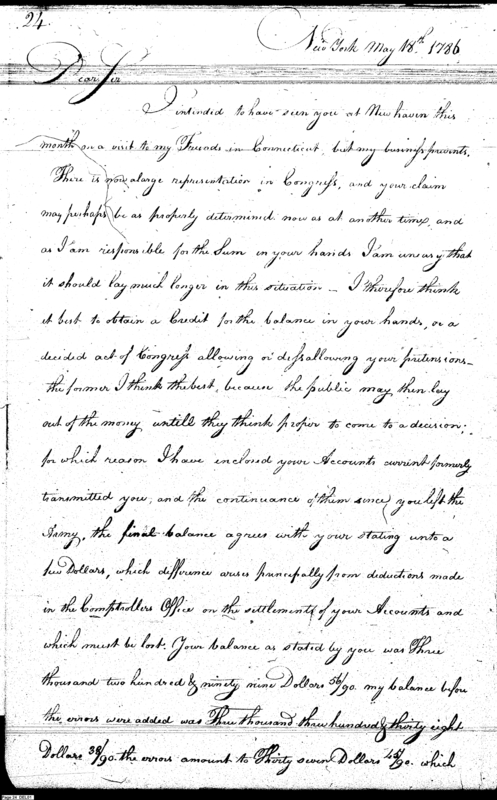 24
New York May 18th 1786
Dear Sir
I intended to have seen you at New haven this
month on a visit to my Friends in Connecticut but my business prevents.
There is now a large representation in Congress, and your claim
may perhaps be as properly determined now as at another time, and
as I am responsible for the Sum in your hands I am uneasy that
it should lay much longer in this situation – I therefore think
it best to obtain a Credit for the balance in your hands, or a
decided act of Congress allowing or dissallowing your pretensions –
the former I think the best, because the public may then lay
out of the money untill they think proper to come to a decision;
for which reason I have enclosed your Accounts current formerly
transmitted you, and the continuance of them since you left the
Army, the final balance agrees with your stating unto a
few Dollars, which difference arises principally from deductions made
in the Comptrollers Office on the settlements of your Accounts and
which must be lost. Your balance as stated by you was Three
thousand two hundred & ninety nine Dollars 56/90. my balance before
the errors were added was Three thousand three hundred & thirty eight
Dollars 38/90. the errors amount to Thirty seven Dollars 45/90. which